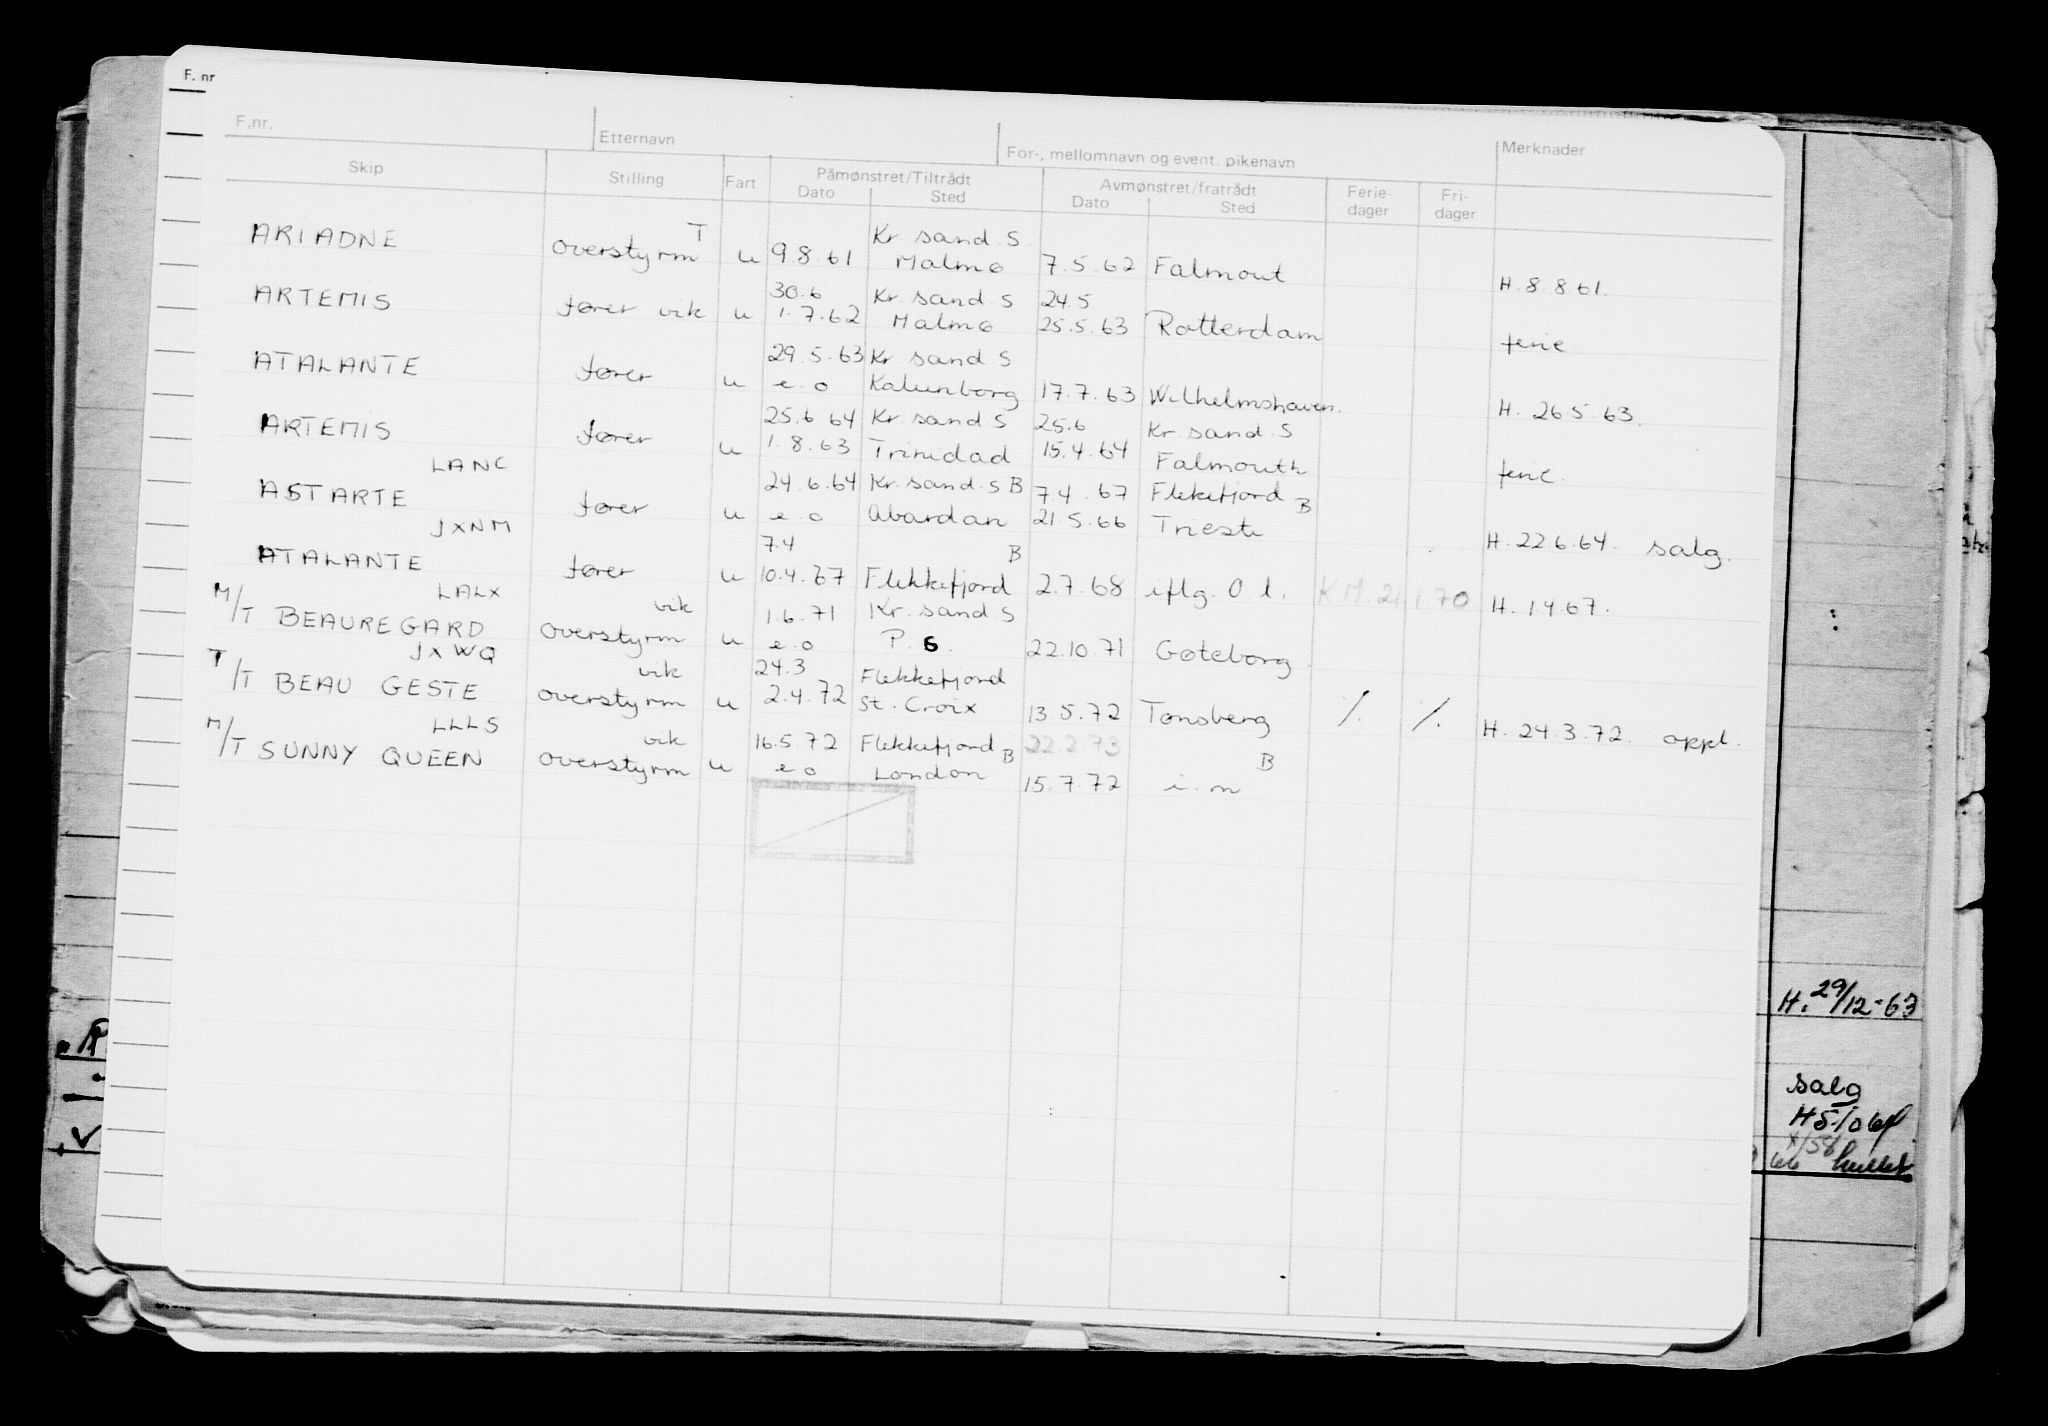 F. nr
F.nr.
Etternavn
For-, mellomnavn og event. pikenavn
Merknader
Skip
Stilling
Fart
Påmønstret/Tiltrådt
Dato
Sted
Avmønstret/fratrådt
Dato
Sted
Ferie-
dager
Fri-
dager
T
Kr sand. S
ARIADNE
overstyrm
u
9.8.61
Malmø
7.5.62
Falmout
H. 8.8.61.
30.6
Kr sand. S
24.5
ARTEMIS
fører vik
u
1.7.62
Malmø
25.5.63
Rotterdam
ferie
29.5.63
Kr. sand. S
ATALANTE
fører
u
e.o
Kalunborg
17.7.63
Wilhelmshaven.
H. 26.5.63.
25.6 64
Kr. sand. S
25.6
Kr. sand. S
ARTEMIS
fører
u
1.8.63
Trinidad
15.4.64
Falmouth
ferie.
LANC
24.6.64
Kr. sand. S B
7.4.67
Flekkefjord B
ASTARTE
fører
u
e.o
Abardan
21.5.66
Trieste
H. 22.6.64. salg.
JXNM
7.4
B
ATALANTE
fører
u
10.4.67
Flekkefjord
2.7.68
iflg. O.l.
K.M. 21.1.70
H. 1.4.67.
LALX
vik
1.6.71
Kr. sand. S
M/T BEAUREGARD
overstyrm
u
e.o
P. G.
22.10.71
Gøteborg.
JXWQ
vik
24.3
Flekkefjord
T/T BEAU GESTE
overstyrm
u
2.4.72
St. Croix
13.5.72
Tønsberg
/.
/.
H. 24.3.72. oppl.
LLLS
vik
16.5.72
Flekkefjord B
22.2.73
B
M/T SUNNY QUEEN
overstyrm
u
e.o
London
15.7.72
i.m
H. 29/12-63
salg